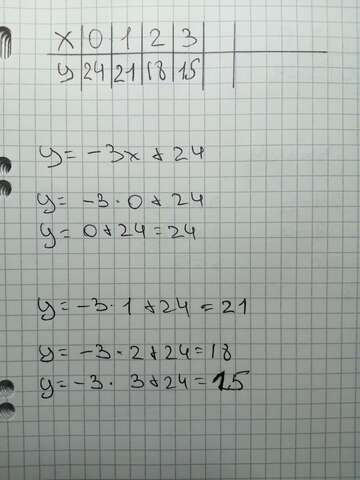 x 0 1 2 3
y 24 21 18 15
y = -3x + 24
y = -3 · 0 + 24
y = 0 + 24 = 24
y = -3 · 1 + 24 = 21
y = -3 · 2 + 24 = 18
y = -3 · 3 + 24 = 15